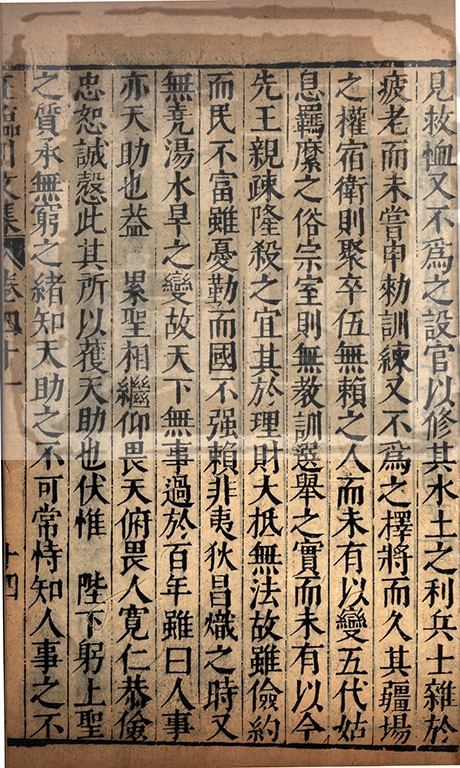 見救恤又不爲之設官以修其水土之利兵士雜於
疲老而未甞申勑訓練又不爲之擇將而久其疆場
之權宿衛則聚卒伍無賴之人而未有以變五代姑
息羈縻之俗宗室則無教訓選舉之實而未有以合
先王親疎隆殺之宜其於理財大抵無法故雖儉約
而民不富雖憂勤而國不强賴非夷狄昌熾之時又
無堯湯水旱之變故天下無事過於百年雖曰人事
亦天助也葢　累聖相繼仰畏天俯畏人寬仁恭儉
忠恕誠慤此其所以獲天助也伏惟　陛下躬上聖
之質承無窮之緒知天助之不可常恃知人事之不
臨川文集　卷四十一　十四